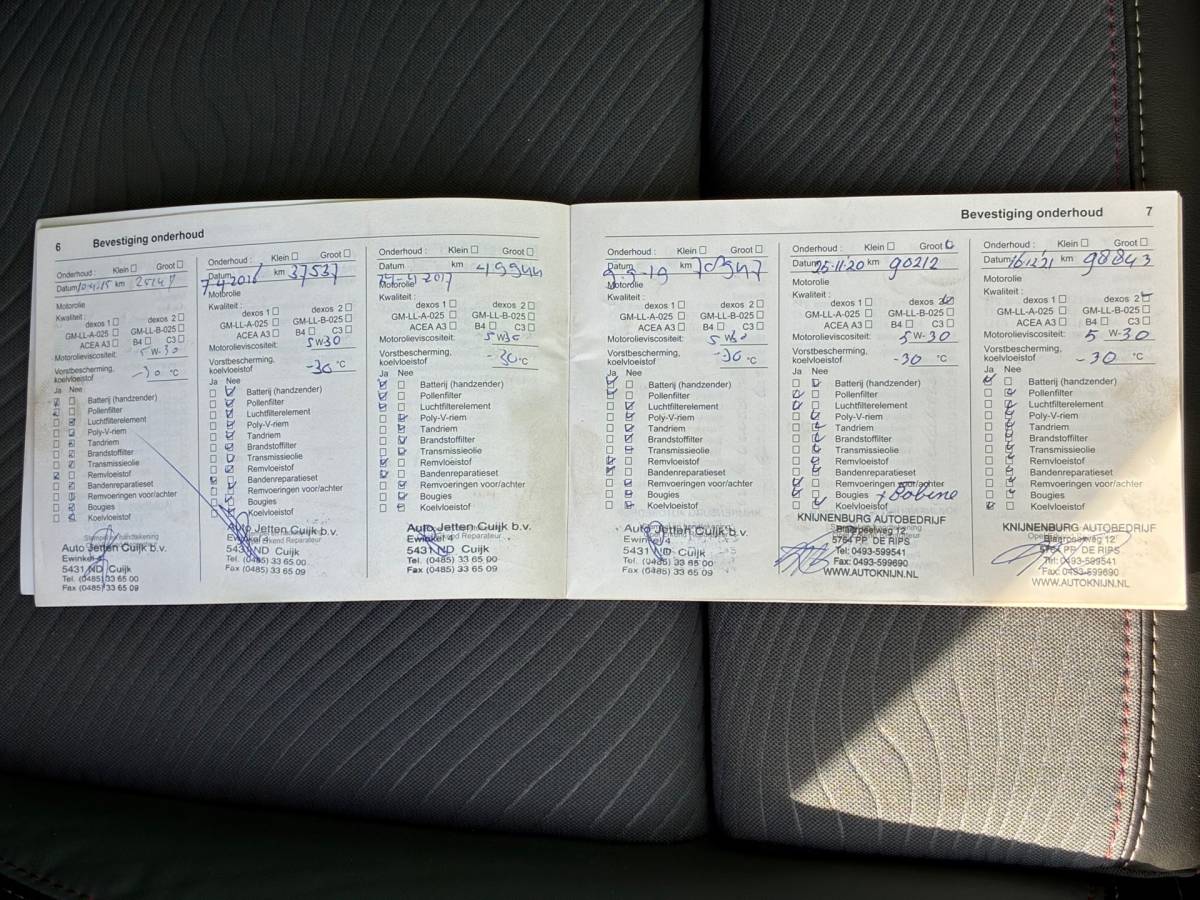 6 Bevestiging onderhoud
Onderhoud : Klein Groot
Datum 10.4.15 km 25147
Motorolie
Kwaliteit :
dexos 1 dexos 2
GM-LL-A-025 GM-LL-B-025
ACEA A3 B4 C3
Motorolieviscositeit:
5 W-30
Vorstbescherming,
koelvloeistof -30 °C
Ja Nee
Batterij (handzender)
Pollenfilter
Luchtfilterelement
Poly-V-riem
Tandriem
Brandstoffilter
Transmissieolie
Remvloeistof
Bandenreparatieset
Remvoeringen voor/achter
Bougies
Koelvloeistof
Auto Jetten Cuijk b.v.
Ewinkel 4
5431 ND Cuijk
Tel. (0485) 33 65 00
Fax (0485) 33 65 09
Onderhoud : Klein Groot
Datum 7.4.2016 km 37537
Motorolie
Kwaliteit :
dexos 1 dexos 2
GM-LL-A-025 GM-LL-B-025
ACEA A3 B4 C3
Motorolieviscositeit:
5W30
Vorstbescherming,
koelvloeistof -30 °C
Ja Nee
Batterij (handzender)
Pollenfilter
Luchtfilterelement
Poly-V-riem
Tandriem
Brandstoffilter
Transmissieolie
Remvloeistof
Bandenreparatieset
Remvoeringen voor/achter
Bougies
Koelvloeistof
Auto Jetten Cuijk b.v.
Ewinkel 4
5431 ND Cuijk
Tel. (0485) 33 65 00
Fax (0485) 33 65 09
Onderhoud : Klein Groot
Datum km 49944
24-4-2017
Motorolie
Kwaliteit :
dexos 1 dexos 2
GM-LL-A-025 GM-LL-B-025
ACEA A3 B4 C3
Motorolieviscositeit: 5W30
Vorstbescherming,
koelvloeistof -30 °C
Ja Nee
Batterij (handzender)
Pollenfilter
Luchtfilterelement
Poly-V-riem
Tandriem
Brandstoffilter
Transmissieolie
Remvloeistof
Bandenreparatieset
Remvoeringen voor/achter
Bougies
Koelvloeistof
Auto Jetten Cuijk b.v.
Ewinkel 4
5431 ND Cuijk
Tel. (0485) 33 65 00
Fax (0485) 33 65 09
Bevestiging onderhoud 7
Onderhoud : Klein Groot
Datum km
Motorolie
Kwaliteit :
dexos 1 dexos 2
GM-LL-A-025 GM-LL-B-025
ACEA A3 B4 C3
Motorolieviscositeit: 5W30
Vorstbescherming,
koelvloeistof -30 °C
Ja Nee
Batterij (handzender)
Pollenfilter
Luchtfilterelement
Poly-V-riem
Tandriem
Brandstoffilter
Transmissieolie
Remvloeistof
Bandenreparatieset
Remvoeringen voor/achter
Bougies
Koelvloeistof
Auto Jetten Cuijk b.v.
Ewinkel 4
5431 ND Cuijk
Tel. (0485) 33 65 00
Fax (0485) 33 65 09
Onderhoud : Klein Groot
Datum 25-11-20 km 90212
Motorolie
Kwaliteit :
dexos 1 dexos 2
GM-LL-A-025 GM-LL-B-025
ACEA A3 B4 C3
Motorolieviscositeit: 5 W-30
Vorstbescherming,
koelvloeistof -30 °C
Ja Nee
Batterij (handzender)
Pollenfilter
Luchtfilterelement
Poly-V-riem
Tandriem
Brandstoffilter
Transmissieolie
Remvloeistof
Bandenreparatieset
Remvoeringen voor/achter
Bougies + Bobine
Koelvloeistof
KNIJNENBURG AUTOBEDRIJF
Blaarpeelweg 12
5764 PP DE RIPS
Tel: 0493-599541
Fax: 0493-599690
WWW.AUTOKNIJN.NL
Onderhoud : Klein Groot
Datum 16.12.21 km 98843
Motorolie
Kwaliteit :
dexos 1 dexos 2
GM-LL-A-025 GM-LL-B-025
ACEA A3 B4 C3
Motorolieviscositeit: 5 W-30
Vorstbescherming,
koelvloeistof -30 °C
Ja Nee
Batterij (handzender)
Pollenfilter
Luchtfilterelement
Poly-V-riem
Tandriem
Brandstoffilter
Transmissieolie
Remvloeistof
Bandenreparatieset
Remvoeringen voor/achter
Bougies
Koelvloeistof
KNIJNENBURG AUTOBEDRIJF
Blaarpeelweg 12
5764 PP DE RIPS
Tel: 0493-599541
Fax: 0493-599690
WWW.AUTOKNIJN.NL